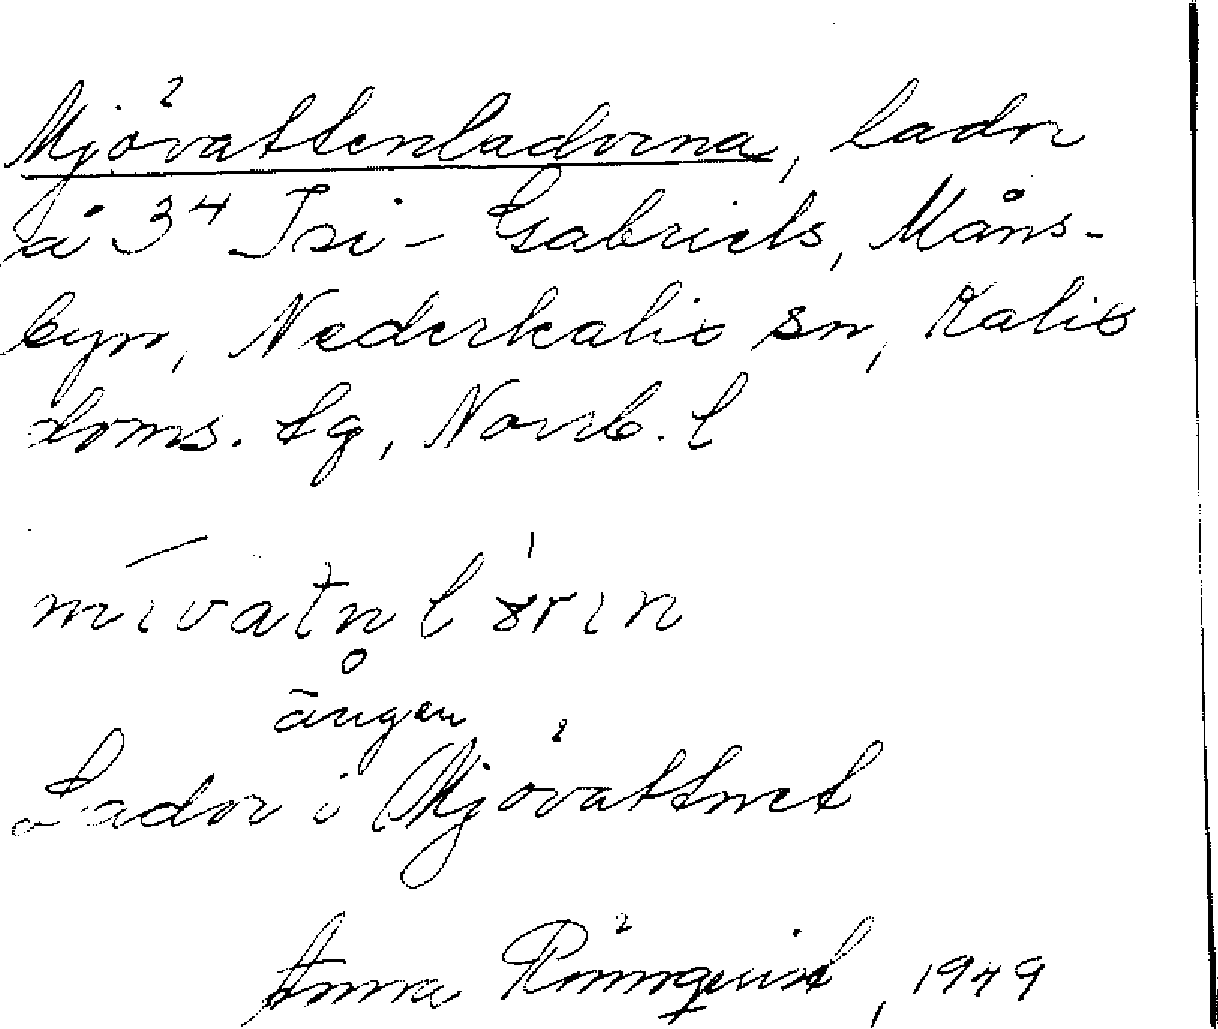 Mjövattenladorna, lador
å 3⁴ Isi-Gabriels, Måns-
byn, Nederkalix sn, Kalix
doms. lg, Norrb. l
ängen
Lador i Mjövattnet
Anna Rönnqvist, 1949